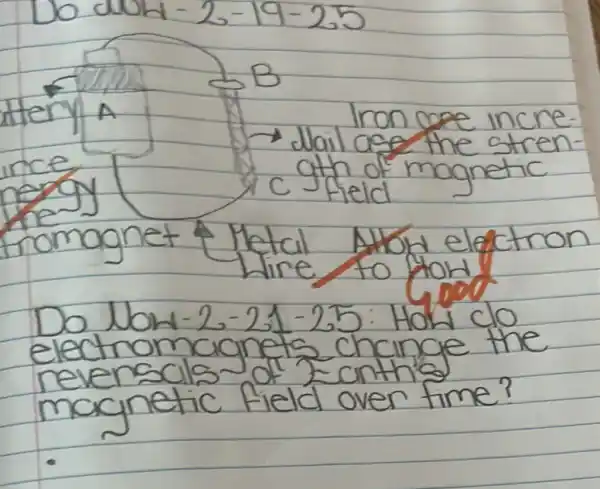 Do Now - 2-19-25
B
ttery A
Iron core incre-
Nail ase the stren-
gth of magnetic
C field
urce
nergy
the
tromagnet Metal Allow electron
Wire to flow
Good
Do Now-2-21-25: How do
electromagnets change the
reversals of Earth's
magnetic field over time?